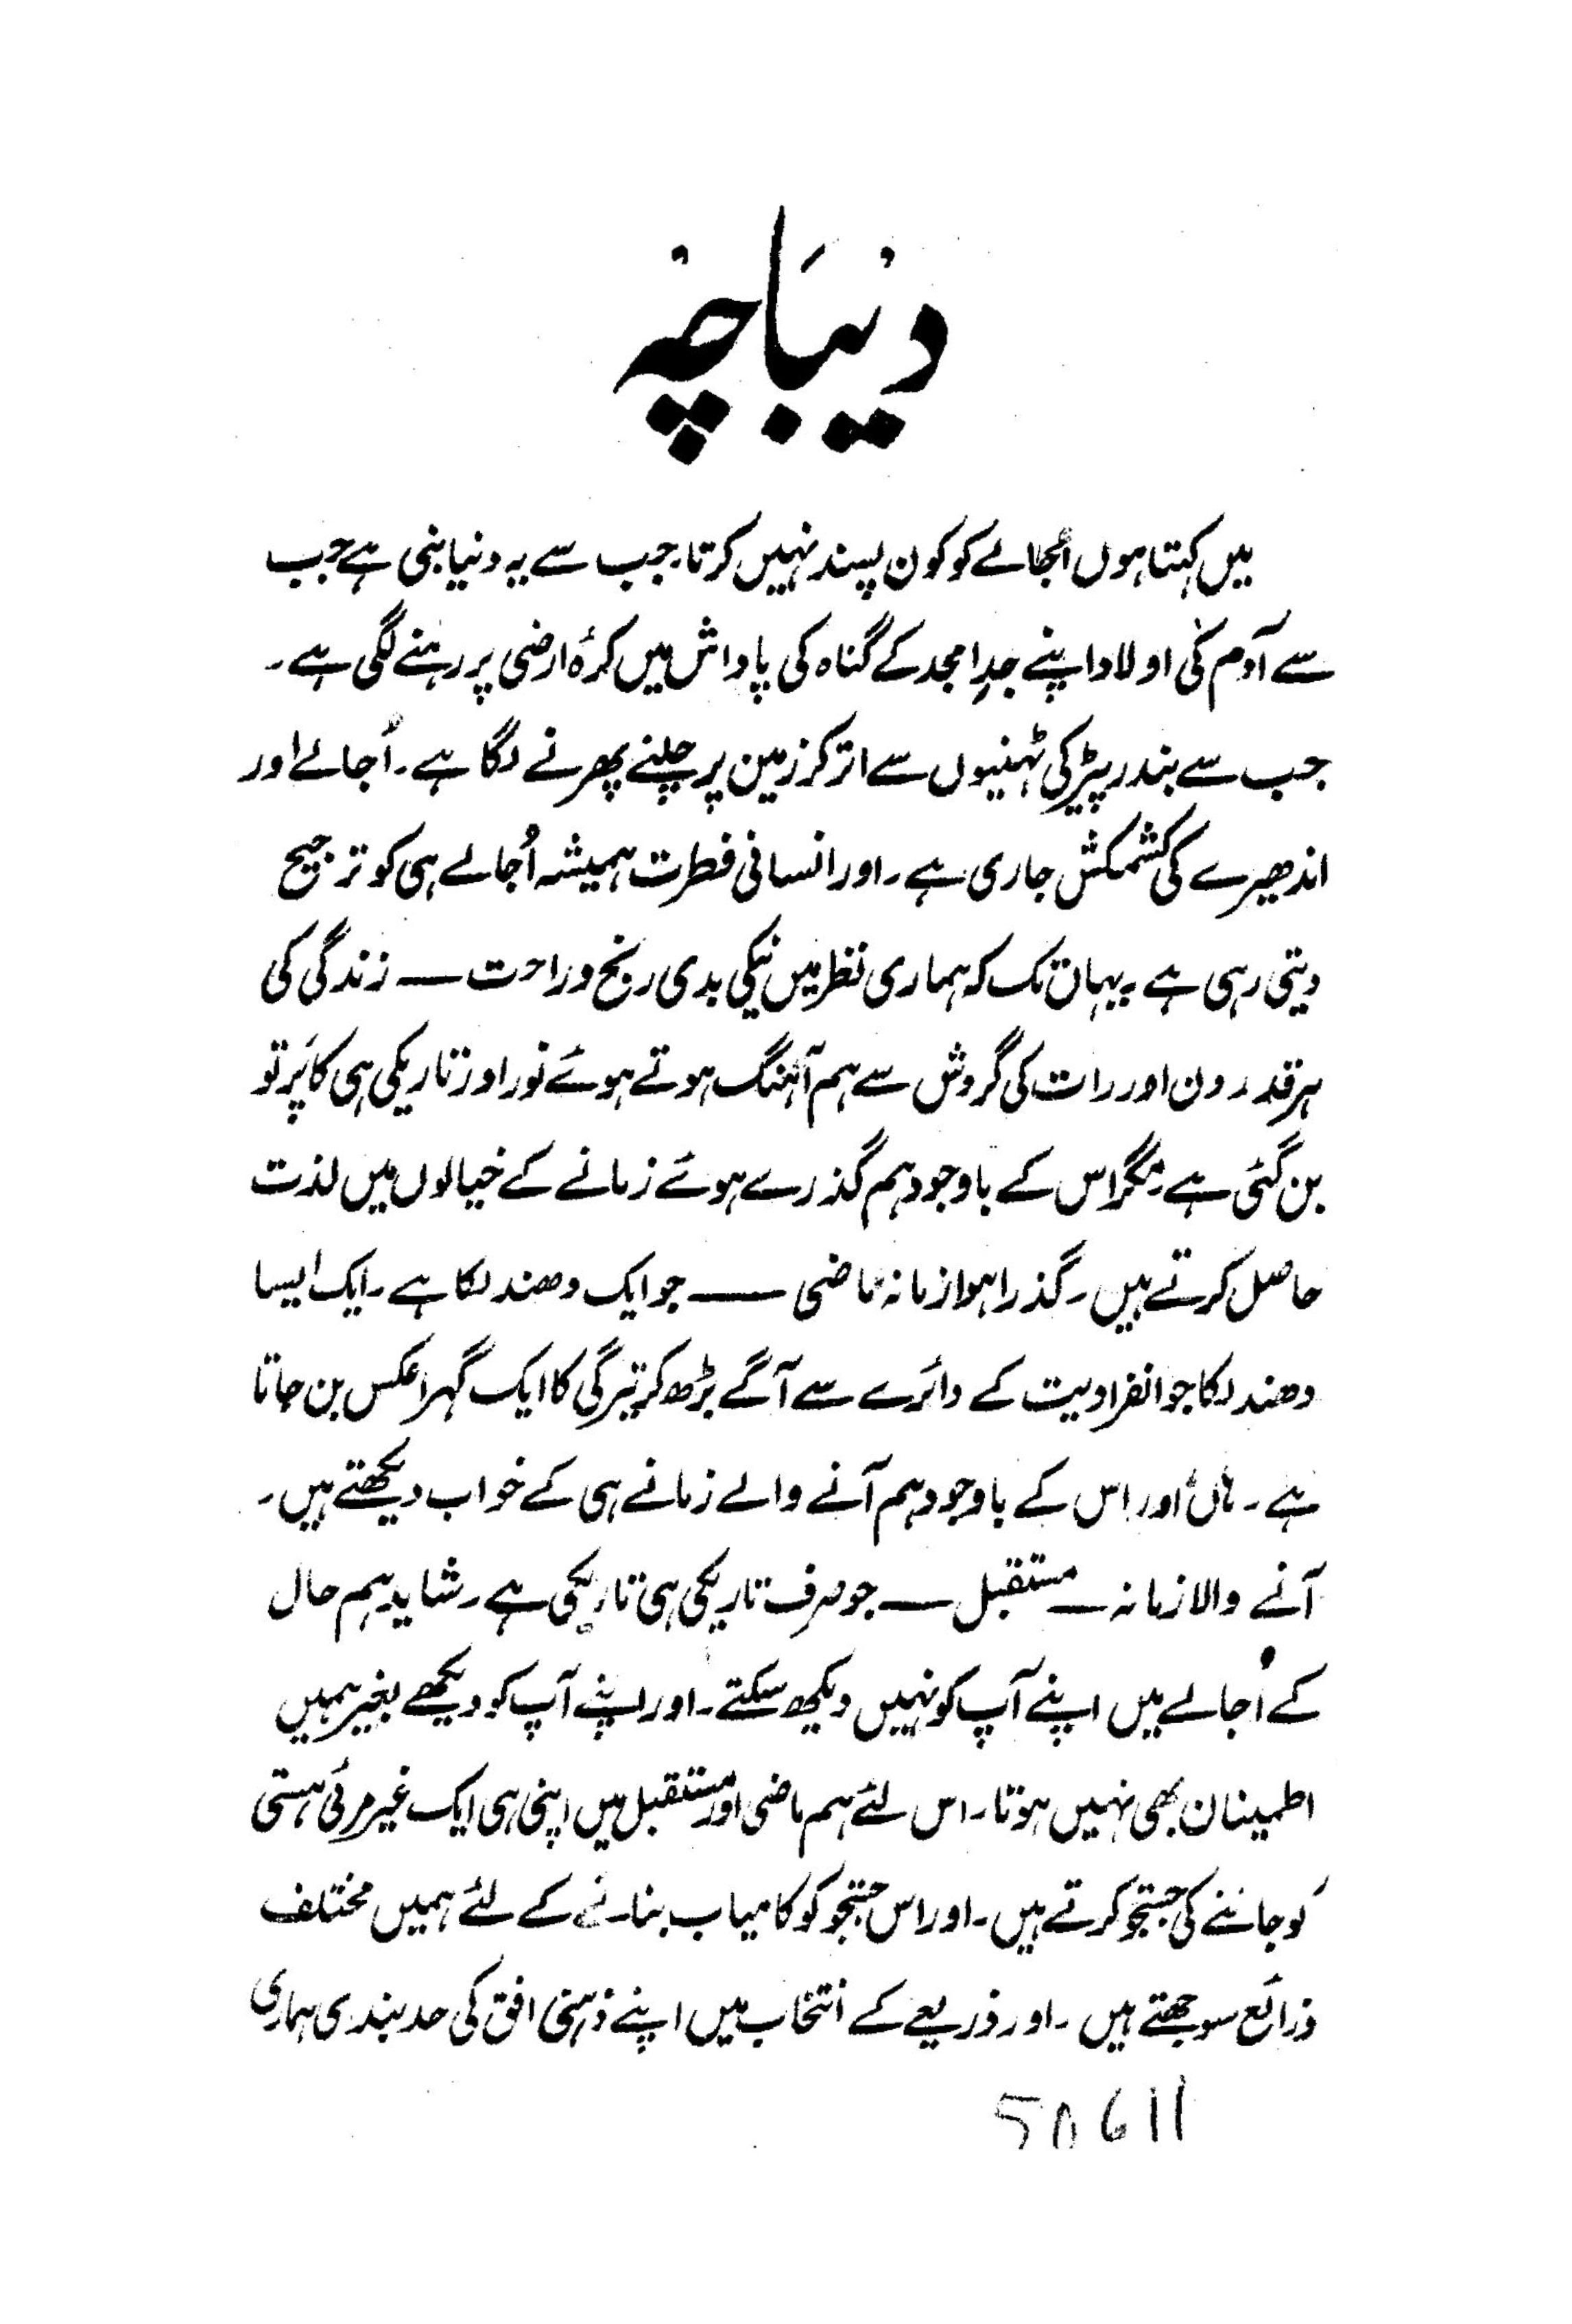 دیباچہ
میں کہتا ہوں اُجالے کو کون پسند نہیں کرتا۔ جب سے یہ دنیا بنی ہے جب
سے آدم کی اولاد اپنے جدِ امجد کے گناہ کی پاداش میں کرۂ ارضی پر رہنے لگی ہے۔
جب سے بندر پیڑ کی ٹہنیوں سے اتر کر زمین پر چلنے پھرنے لگا ہے۔ اُجالے اور
اندھیرے کی کشمکش جاری ہے۔ اور انسانی فطرت ہمیشہ اُجالے ہی کو ترجیح
دیتی رہی ہے۔ یہاں تک کہ ہماری نظر میں نیکی بدی رنج و راحت — زندگی کی
ہر قدر دن اور رات کی گردش سے ہم آہنگ ہوتے ہوئے نور اور تاریکی ہی کا پَرتو
بن گئی ہے۔ مگر اس کے باوجود ہم گذرے ہوئے زمانے کے خیالوں میں لذت
حاصل کرتے ہیں۔ گذرا ہوا زمانہ ماضی — جو ایک دھندلکا ہے۔ ایک ایسا
دھندلکا جو انفرادیت کے دائرے سے آگے بڑھ کر تیرگی کا ایک گہرا عکس بن جاتا
ہے۔ ہاں اور اس کے باوجود ہم آنے والے زمانے ہی کے خواب دیکھتے ہیں۔
آنے والا زمانہ — مستقبل — جو صرف تاریکی ہی تاریکی ہے۔ شاید ہم حال
کے اُجالے میں اپنے آپ کو نہیں دیکھ سکتے۔ اور اپنے آپ کو دیکھے بغیر ہمیں
اطمینان بھی نہیں ہوتا۔ اس لئے ہم ماضی اور مستقبل میں اپنی ہی ایک غیر مرئی ہستی
کو جاننے کی جستجو کرتے ہیں۔ اور اس جستجو کو کامیاب بنانے کے لئے ہمیں مختلف
ذرائع سوجھتے ہیں۔ اور ذریعے کے انتخاب میں اپنے ذہنی افق کی حد بندی ہماری